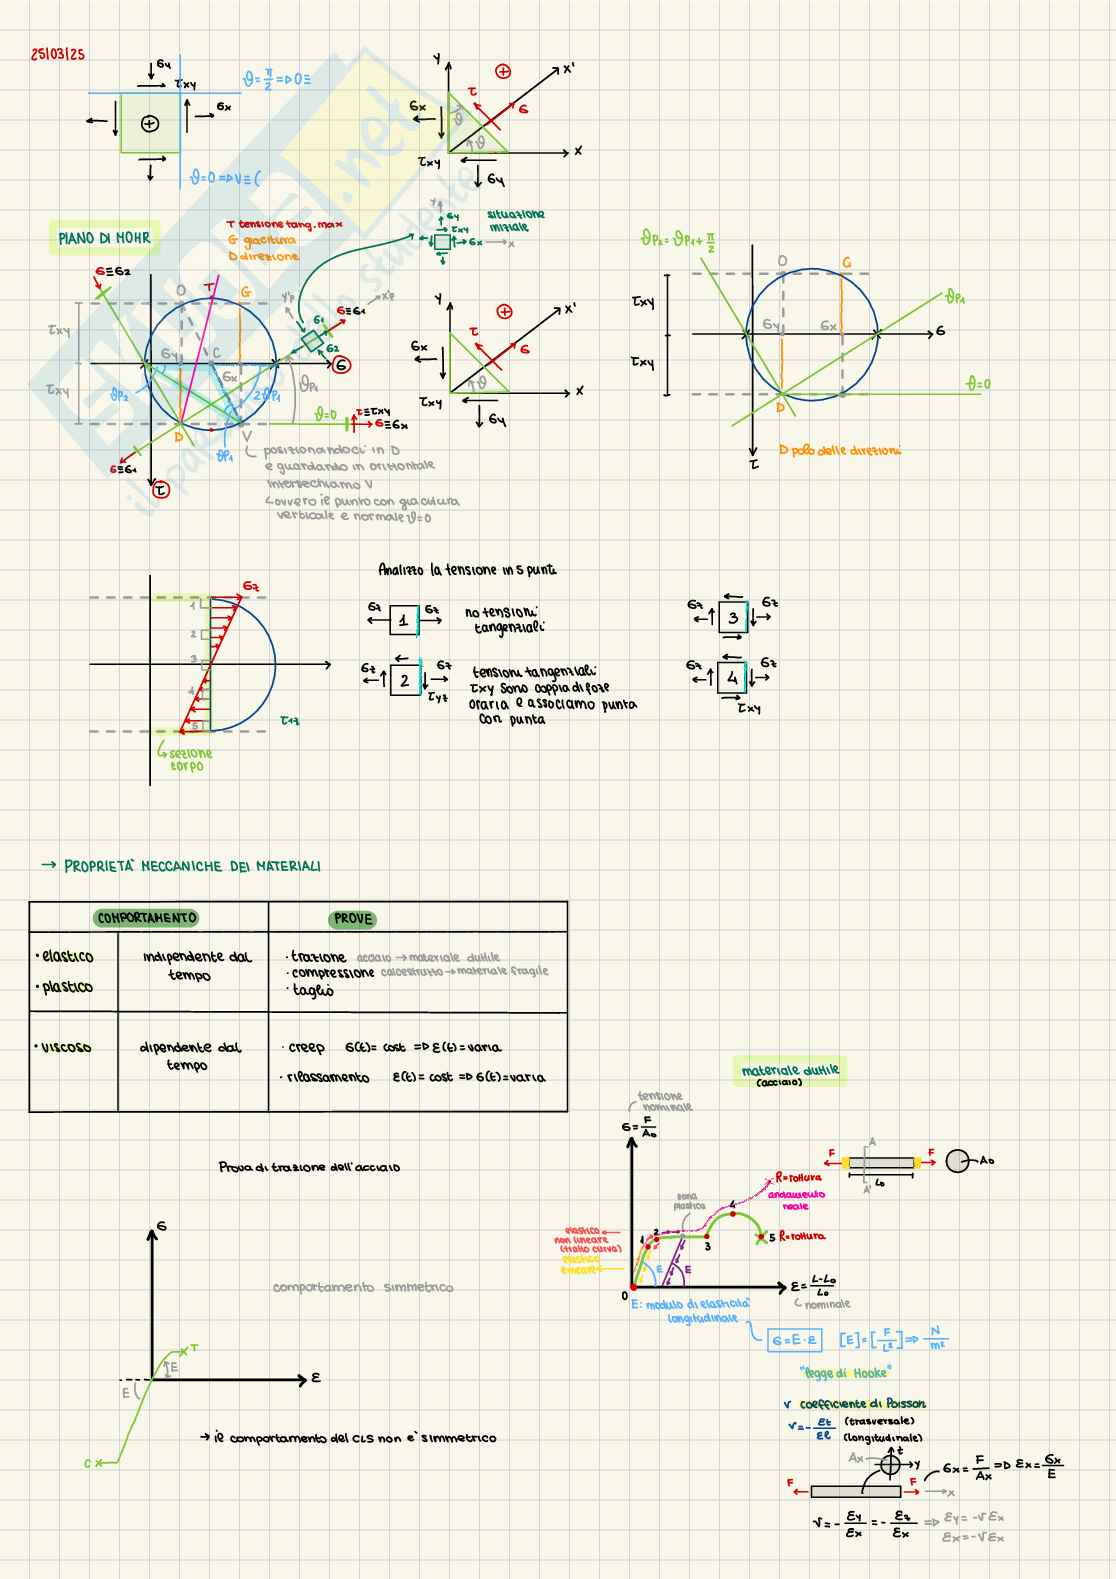 25/03/25
σy
τxy
σx
ϑ=π/2 => O≡
ϑ=0 => V≡(
y
x'
τ
σ
σx
ϑ
ϑ
τxy
x
σy
PIANO DI MOHR
T tensione tang. max
G giacitura
D direzione
y
σy
τxy
σx
x
situazione
iniziale
σ≡σ2
O
T
G
y'p
x'p
σ1
σ≡σ1
σ2
τxy
σy
C
σx
σ
τxy
ϑp2
2ϑp1
ϑp1
ϑ=0
τ≡τxy
σ≡σx
D
V
ϑp1
σ≡σ1
τ
posizionandoci in D
e guardando in orizzontale
intersechiamo V
ovvero il punto con giacitura
verticale e normale ϑ=0
y
x'
τ
σ
σx
ϑ
τxy
x
σy
ϑp2 = ϑp1 + π/2
O
G
ϑp1
τxy
σy
σx
σ
τxy
ϑ=0
D
τ
D polo delle direzioni
Analizzo la tensione in 5 punti
σz
1
2
3
4
5
τ1z
sezione
corpo
σz 1 σz
no tensioni
tangenziali
σz 2 σz
τyz
tensioni tangenziali
τxy sono coppia di forze
oraria e associamo punta
con punta
σz 3 σz
σz 4 σz
τxy
→ PROPRIETÀ MECCANICHE DEI MATERIALI
COMPORTAMENTO
PROVE
• elastico
• plastico
indipendente dal
tempo
· trazione acciaio → materiale duttile
· compressione calcestruzzo → materiale fragile
· taglio
• viscoso
dipendente dal
tempo
· creep σ(t)= cost => ε(t)= varia
· rilassamento ε(t)= cost => σ(t)= varia
materiale duttile
(acciaio)
tensione
nominale
σ = F/A₀
Prova di trazione dell'acciaio
F
A
A'
F
L₀
A₀
R=rottura
andamento
reale
zona
plastica
elastico
non lineare
(tratto curva)
elastico
lineare
1
2
3
4
5 R=rottura
E
E
0
ε = L-L₀/L₀
nominale
E: modulo di elasticità
longitudinale
σ = E·ε
[E] = [F/L²] => N/m²
"legge di Hooke"
σ
comportamento simmetrico
T
E
E
ε
C
→ il comportamento del CLS non è simmetrico
ν coefficiente di Poisson
ν = - εt/εl
(trasversale)
(longitudinale)
Ax
z
y
F
F
x
σx = F/Ax => εx = σx/E
ν = - εy/εx = - εz/εx => εy = -νεx
εx = -νεx